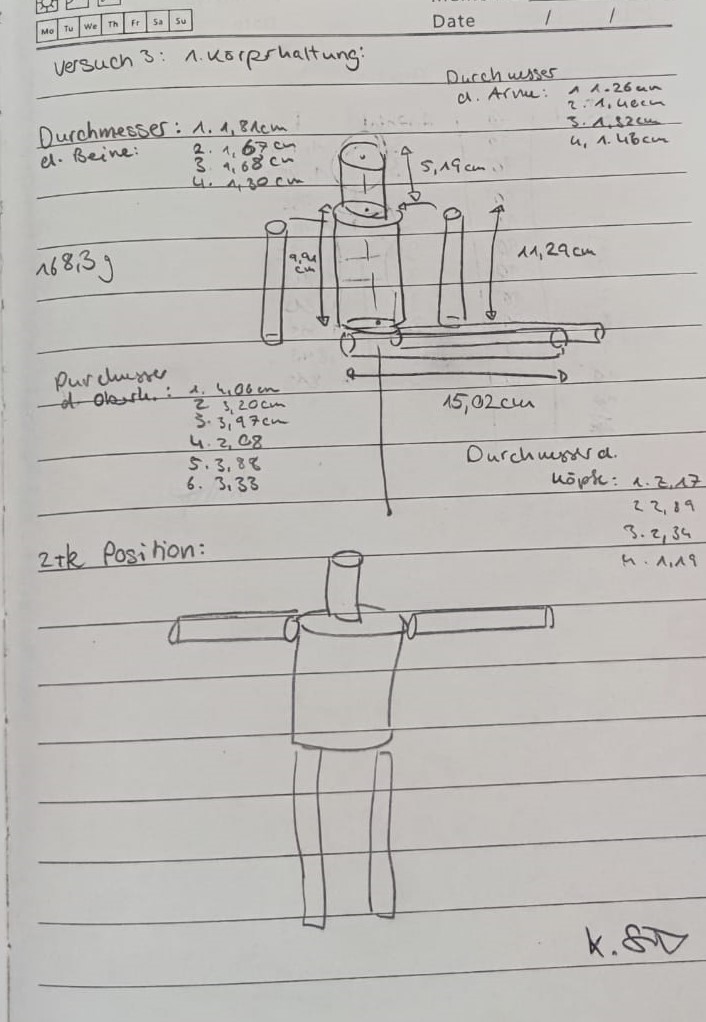 Mo Tu We Th Fr Sa Su
Date / /
Versuch 3: 1. Körperhaltung:
Durchmesser
d. Arme: 1 1.26cm
2. 1,40cm
3. 1,32cm
4, 1.46cm
Durchmesser: 1. 1,81cm
d. Beine: 2. 1,67cm
3. 1,68cm
4. 1,30cm
5,19cm
168,3g
9,91
cm
11,29cm
15,02cm
Durchmesser
1. 4,06cm
2 3,20cm
3. 3,97cm
4. 2,08
5. 3,88
6. 3,33
Durchmesser d.
Köpfe: 1. 2,17
2 2,89
3. 2,34
4. 1,19
2te Position: